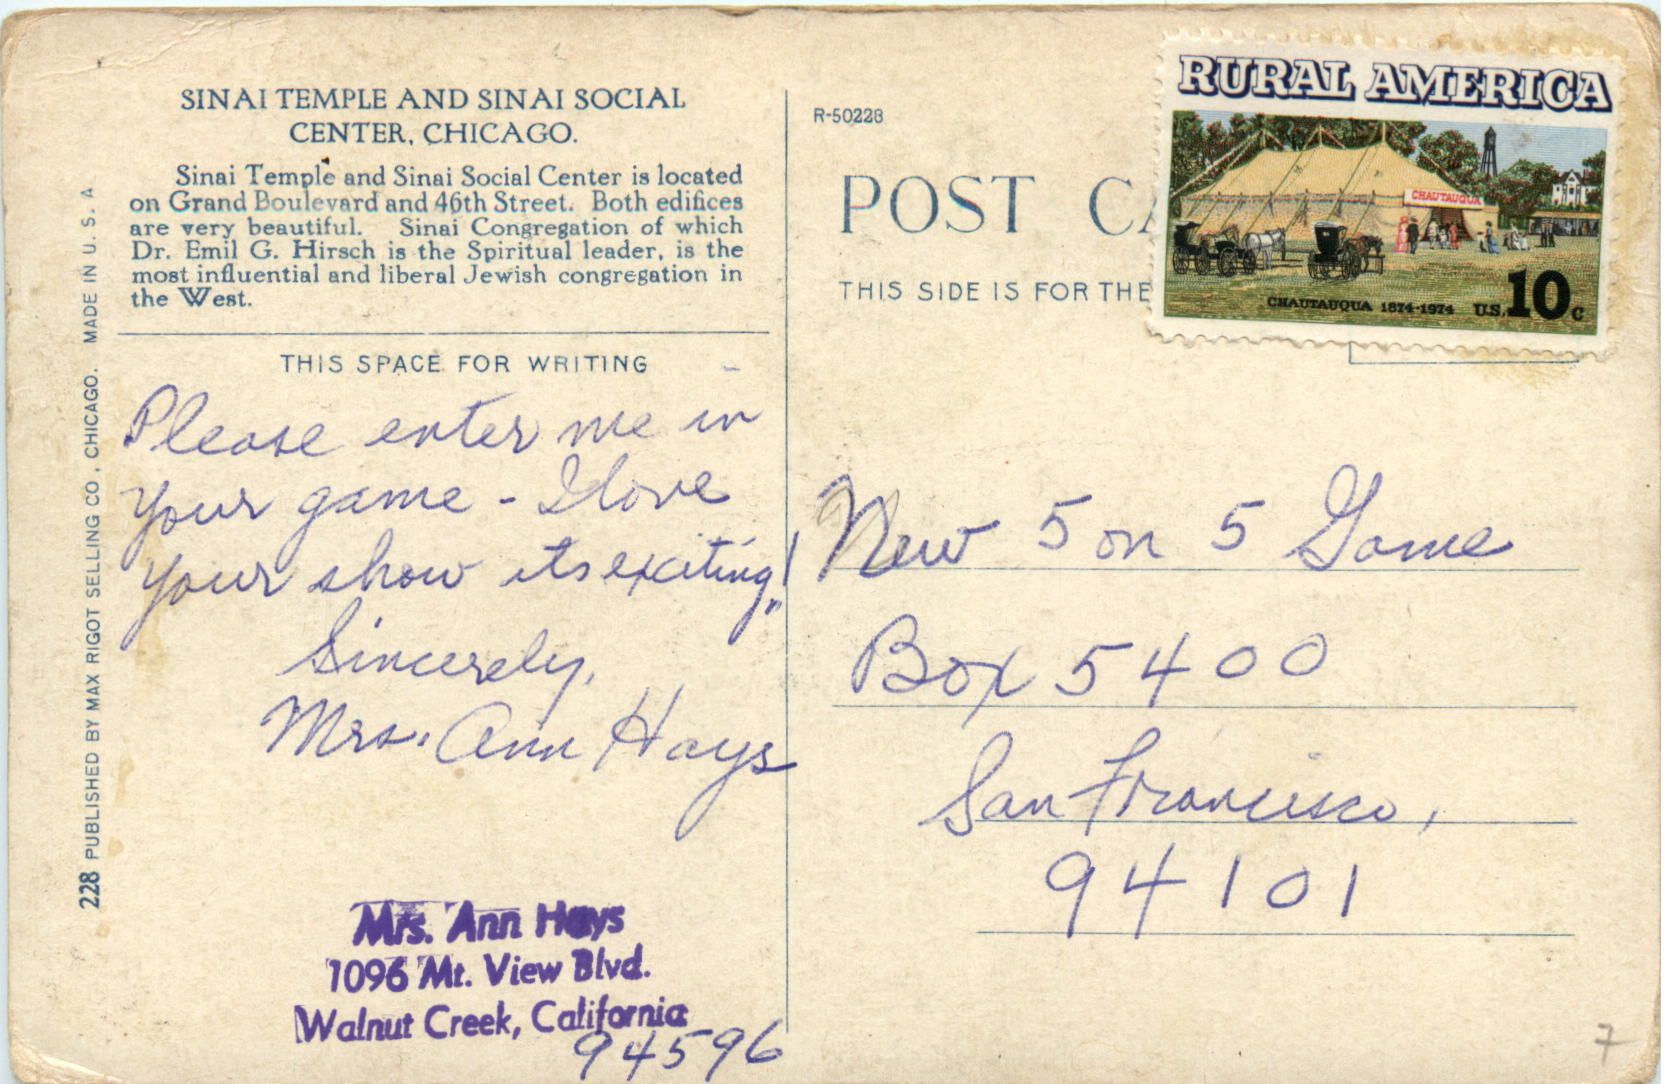 SINAI TEMPLE AND SINAI SOCIAL
CENTER, CHICAGO.
Sinai Temple and Sinai Social Center is located
on Grand Boulevard and 46th Street. Both edifices
are very beautiful. Sinai Congregation of which
Dr. Emil G. Hirsch is the Spiritual leader, is the
most influential and liberal Jewish congregation in
the West.
THIS SPACE FOR WRITING
Please enter me in
your game - I love
your show its exciting!
Sincerely,
Mrs. Ann Hays
Mrs. Ann Hays
1096 Mt. View Blvd.
Walnut Creek, California
94596
228 PUBLISHED BY MAX RIGOT SELLING CO., CHICAGO. MADE IN U. S. A.
R-50228
POST CA
THIS SIDE IS FOR THE
RURAL AMERICA
CHAUTAUQUA
CHAUTAUQUA 1874-1974 U.S. 10c
New 5 on 5 Game
Box 5400
San Francisco,
94101
7